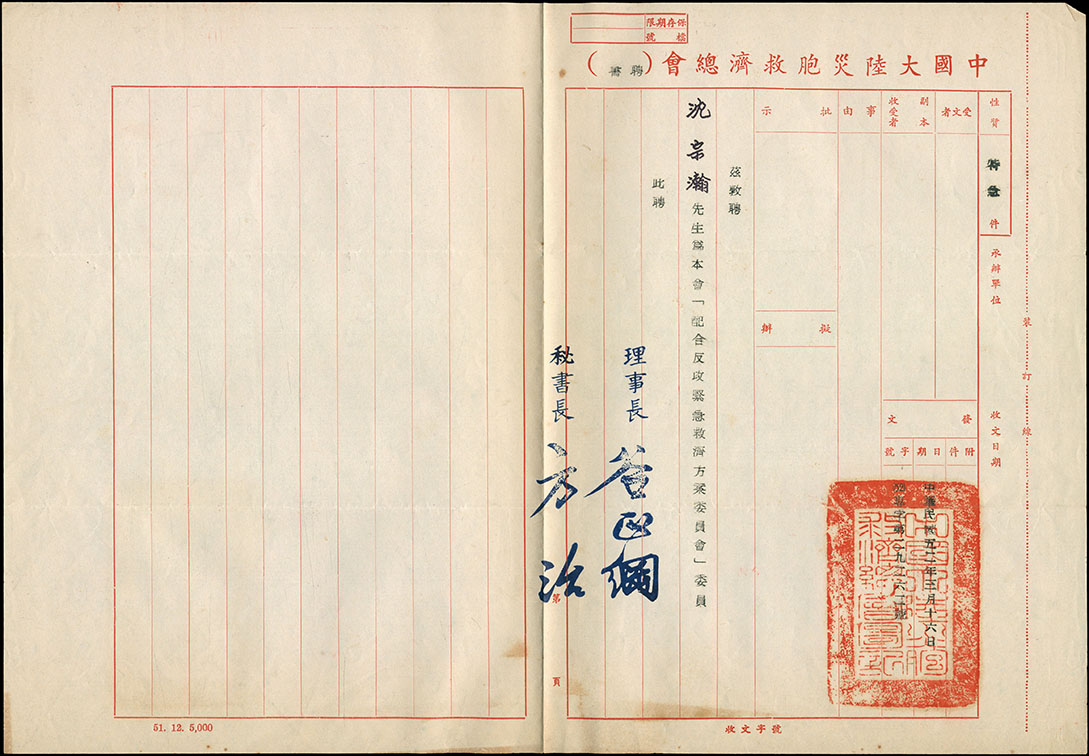 保存期限
檔號
中國大陸災胞救濟總會(聘書)
裝訂線
性質
特急
件
承辦單位
收文日期
受文者
副本
收受者
發文
附件
日期
字號
中華民國五二年三月十六日
事由
批示
擬辦
茲敦聘
沈宗瀚先生爲本會「配合反攻緊急救濟方案委員會」委員
此聘
理事長 谷正綱
秘書長 方治
第 頁
收文字號
51. 12. 5,000